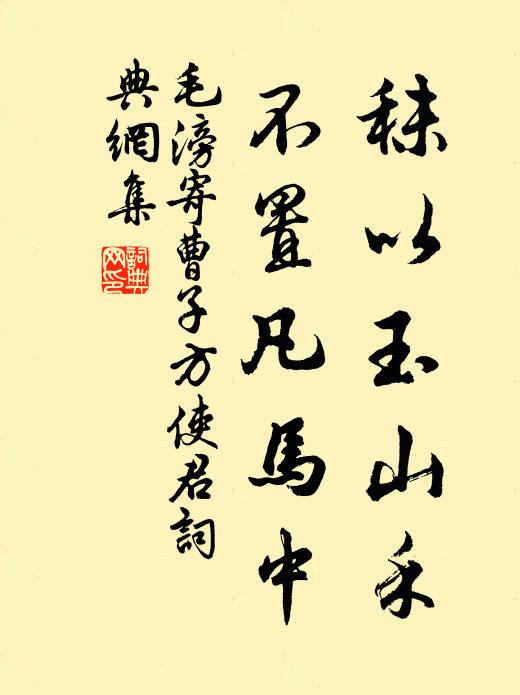 秣以玉山禾
不置凡馬中
毛滂寄曹子方使君詞
典網集
詞典网印